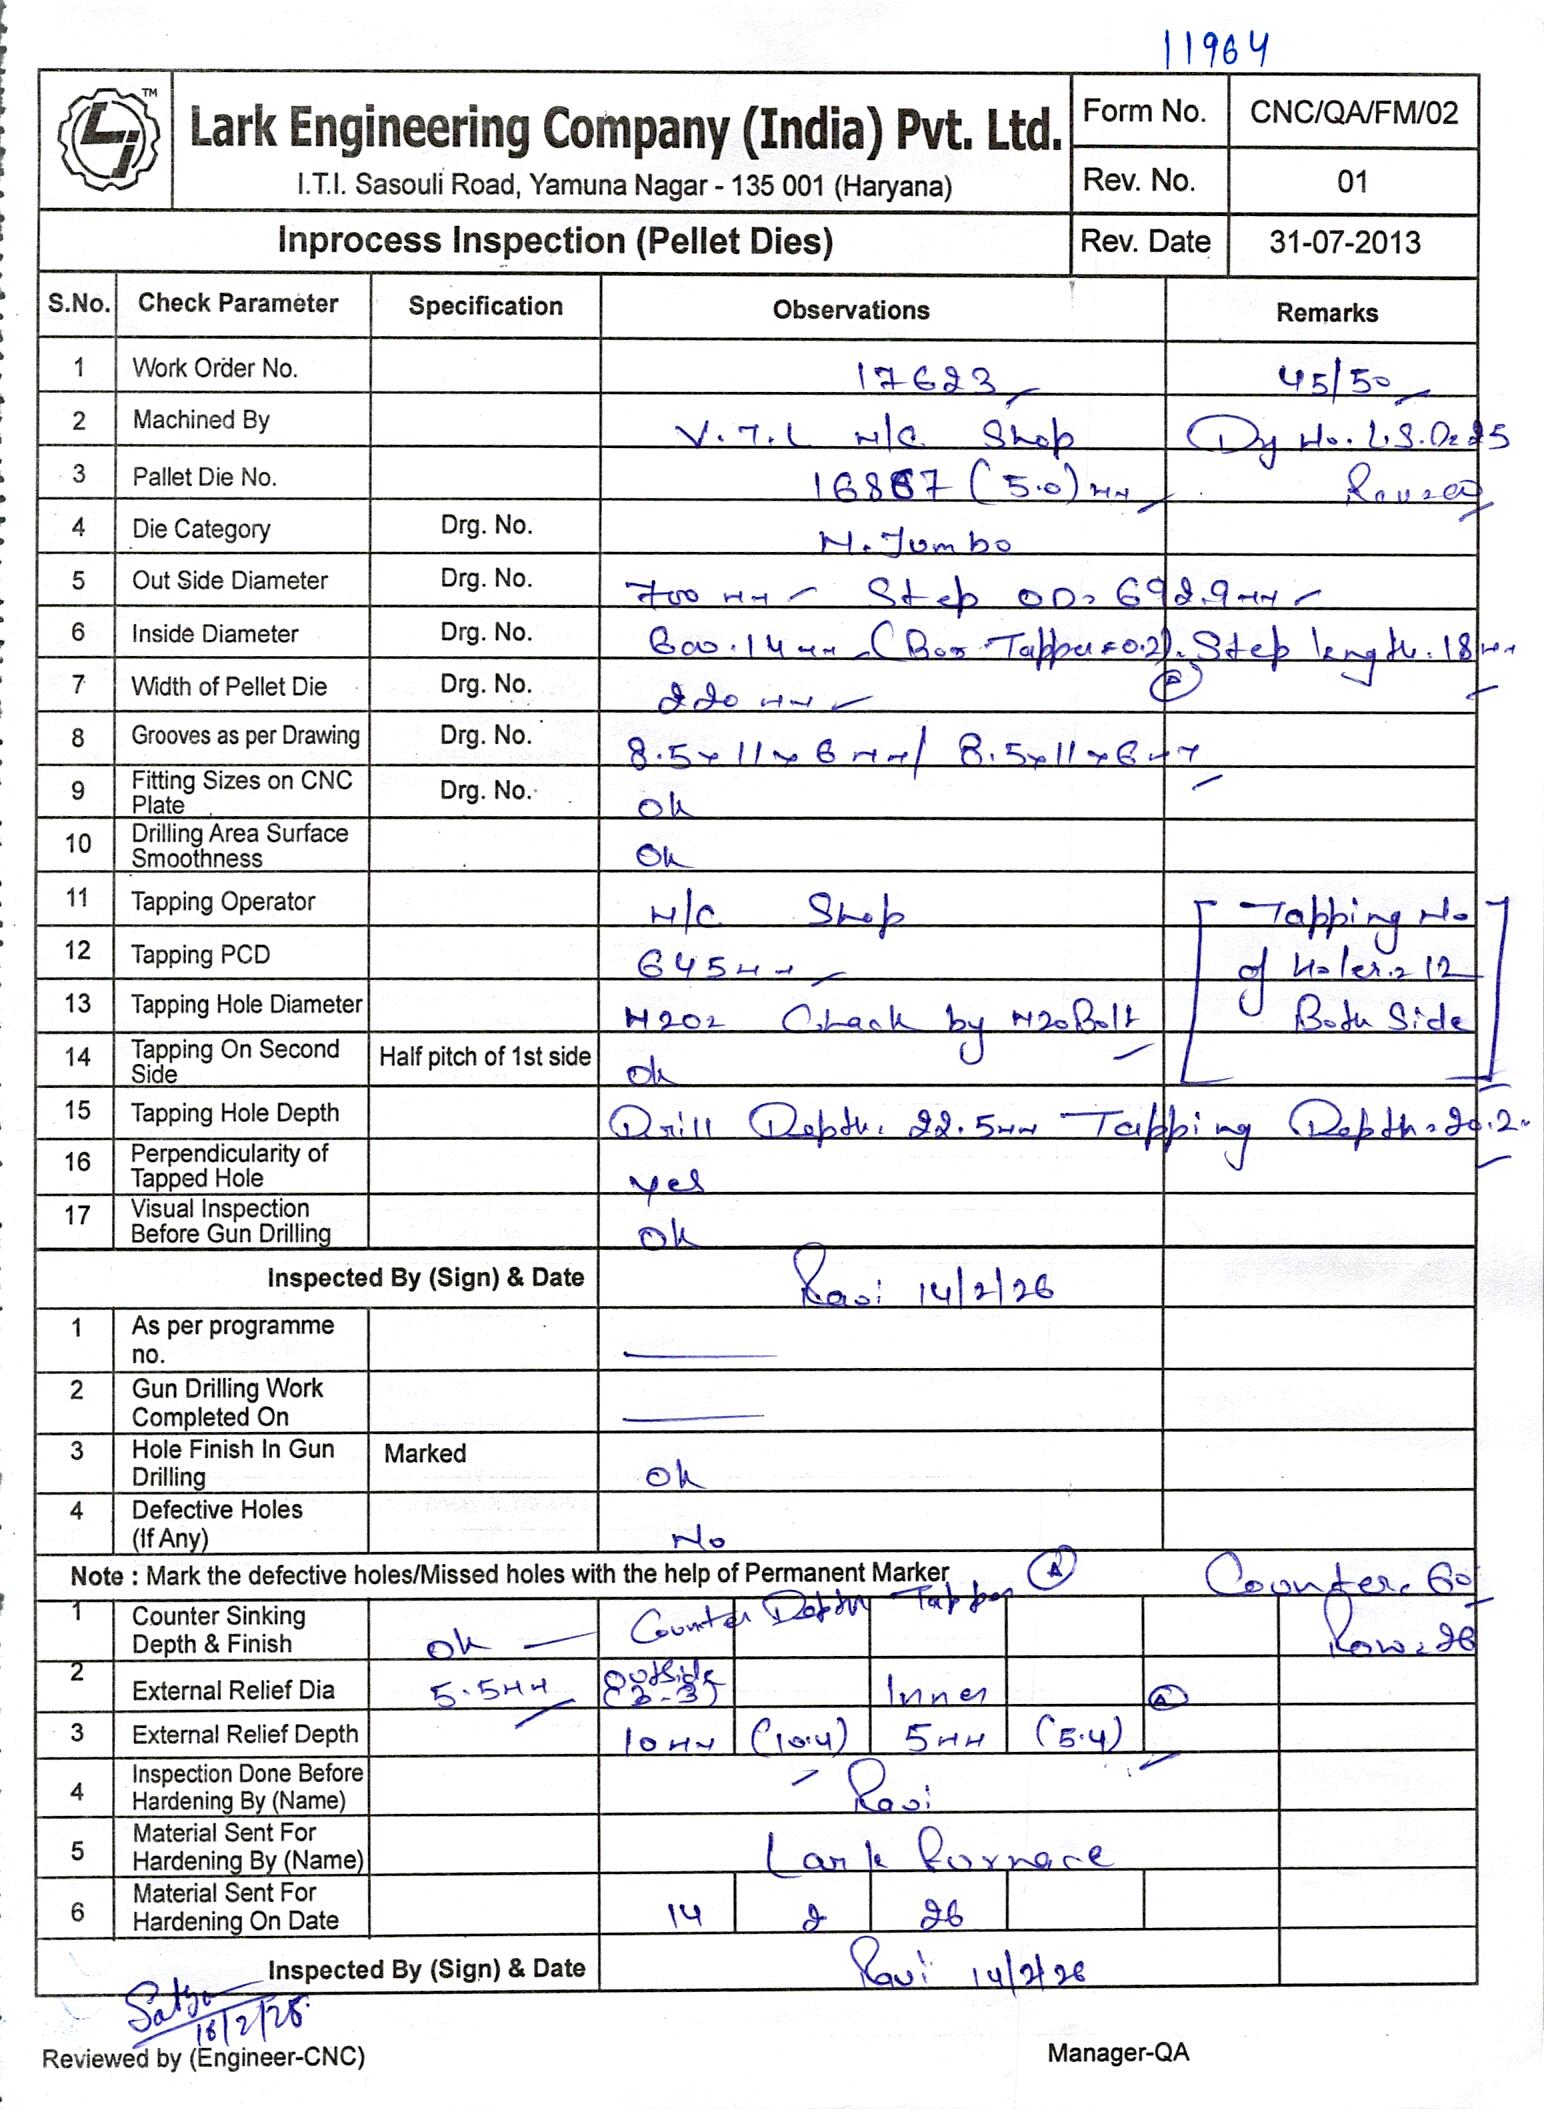 11964
TM
Lark Engineering Company (India) Pvt. Ltd.
I.T.I. Sasouli Road, Yamuna Nagar - 135 001 (Haryana)
Form No. CNC/QA/FM/02
Rev. No. 01
Inprocess Inspection (Pellet Dies) Rev. Date 31-07-2013
S.No. Check Parameter Specification Observations Remarks
1 Work Order No. 17623 45/50
2 Machined By V.T.L M/C Shop Drg No. L.S.D=25
3 Pallet Die No. 16867 (5.0) mm
4 Die Category Drg. No. M. Jumbo
5 Out Side Diameter Drg. No. 700 mm Step OD= 692.9mm
6 Inside Diameter Drg. No. 600.14mm (Bor Tapper=0.2). Step length. 18mm
7 Width of Pellet Die Drg. No. 220 mm
8 Grooves as per Drawing Drg. No. 8.5x11x6mm/ 8.5x11x6mm
9 Fitting Sizes on CNC Plate Drg. No. ok
10 Drilling Area Surface Smoothness ok
11 Tapping Operator M/C Shop Tapping No
12 Tapping PCD 645mm of Holes=12
13 Tapping Hole Diameter M20= Chack by M20Bolt Both Side
14 Tapping On Second Side Half pitch of 1st side ok
15 Tapping Hole Depth Drill Depth. 22.5mm Tapping Depth=20.2
16 Perpendicularity of Tapped Hole yes
17 Visual Inspection Before Gun Drilling ok
Inspected By (Sign) & Date Ravi 14/2/26
1 As per programme no.
2 Gun Drilling Work Completed On
3 Hole Finish In Gun Drilling Marked ok
4 Defective Holes (If Any) No
Note : Mark the defective holes/Missed holes with the help of Permanent Marker A Counter. 60
1 Counter Sinking Depth & Finish ok Counter Depth Tapper Row=26
2 External Relief Dia 5.5mm Outside (3-3) Inner A
3 External Relief Depth 10mm (10.4) 5mm (5.4)
4 Inspection Done Before Hardening By (Name) Ravi
5 Material Sent For Hardening By (Name) Lark Furnace
6 Material Sent For Hardening On Date 14 2 26
Inspected By (Sign) & Date Ravi 14/2/26
Satya
Reviewed by (Engineer-CNC) Manager-QA